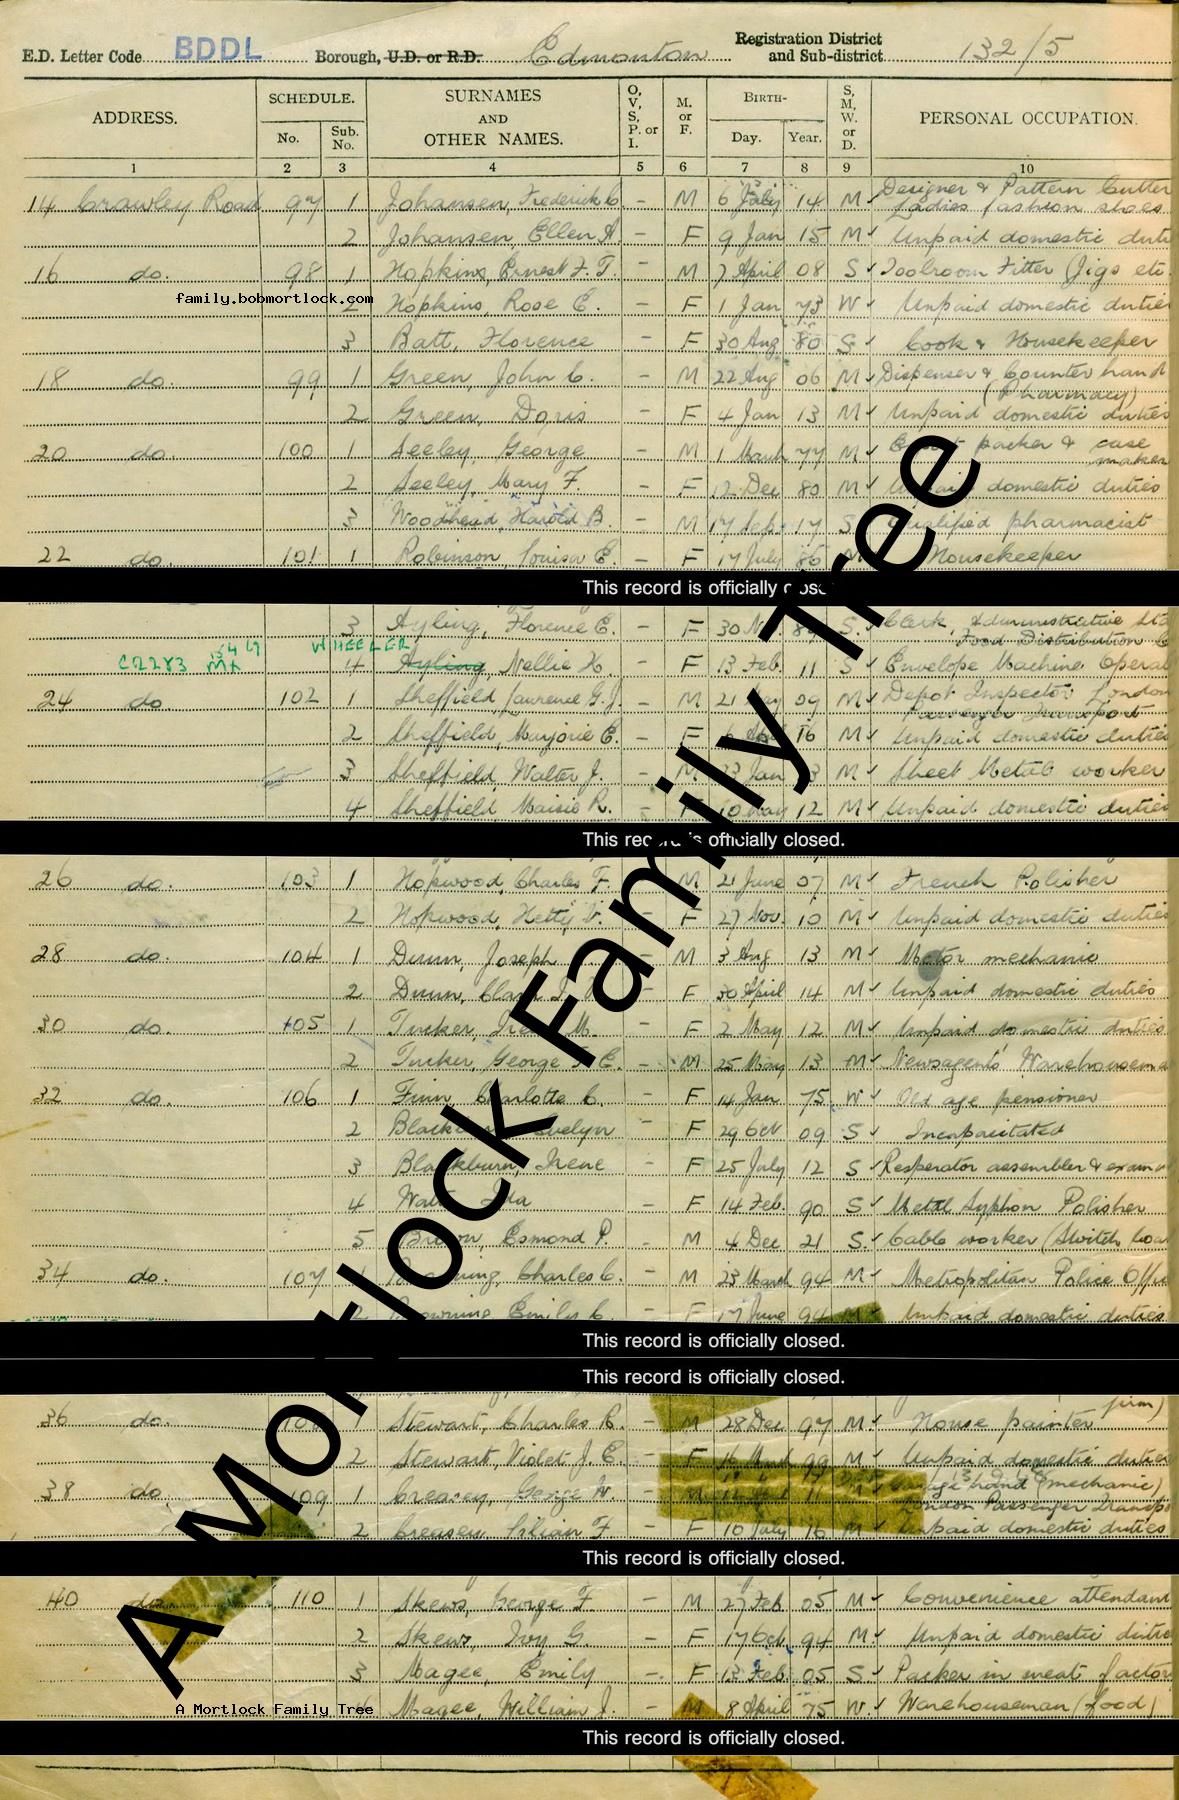 E.D. Letter Code BDDL Borough, U.D. or R.D. Edmonton Registration District and Sub-district 132/5
ADDRESS. SCHEDULE. No. Sub. No. SURNAMES AND OTHER NAMES. O, V, S, P. or I. M. or F. BIRTH- Day. Year. S, M, W. or D. PERSONAL OCCUPATION.
1 2 3 4 5 6 7 8 9 10
14 Crawley Road 97 1 Johansen, Frederick C - M 6 July 14 M Designer & Pattern Cutter Ladies fashion shoes
2 Johansen, Ellen A. - F 9 Jan 15 M Unpaid domestic duti
16 do. 98 1 Hopkins, Ernest F. T. M 7 April 08 S Toolroom Fitter (Jigs etc.
family.bobmortlock.com
2 Hopkins, Rose E. - F 1 Jan 73 W Unpaid domestic duties
3 Batt, Florence - F 30 Aug 80 S. Cook & Housekeeper
18 do. 99 1 Green John C. - M 22 Aug 06 M Dispenser & Counter hand (Pharmacy)
2 Green, Doris - F 4 Jan 13 M Unpaid domestic duties
20 do. 100 1 Seeley, George - M 1 March 77 M packer & case maker
2 Seeley, Mary F. - F 12 Dec 80 M domestic duties
3 Woodhead, Harold B. - M 17 Sep. 17 S Qualified pharmacist
22 do. 101 1 Robinson, Louisa E. F 17 July 86 Housekeeper
This record is officially closed.
3 Ayling, Florence E. - F 30 S. Clerk, Administrative Sta Food Distribution
CR283 WHEELER
4 Ayling, Nellie K - F 13 Feb. 11 S Envelope Machine Opera
24 do 102 1 Sheffield Laurence G.J. M 21 09 M Depot Inspector London Passenger Transport
2 Sheffield, Marjorie E. - F 6 16 M Unpaid domestic duties
3 Sheffield, Walter J. - M 23 Jan M Sheet Metal worker
4 Sheffield Maisie R. - F 10 May 12 M Unpaid domestic duties
This record is officially closed.
26 do. 103 1 Hopwood, Charles F. M 21 June 07 M French Polisher
2 Hopwood, Hetty V. - F 27 Nov. 10 M Unpaid domestic duties
28 do. 104 1 Dunn, Joseph - M 3 Aug 13 M Motor mechanic
2 Dunn, Clara - F 30 April 14 M Unpaid domestic duties
30 do. 105 1 Tucker, M. - F 2 May 12 M Unpaid domestic duties
2 Tucker, George E. - M 25 May 13 M Newsagents' Warehousema
32 do. 106 1 Finn, Charlotte C. F 14 Jan 75 W Old age pensioner
2 Evelyn - F 29 Oct 09 S Incapacitated
3 Blackburn, Irene - F 25 July 12 S Resperator assembler & exam
4 Ida - F 14 Feb. 90 S Metal Syphon Polisher
5 Brown, Esmond P. - M 4 Dec 21 S. Cable worker (Switch boa
34 do. 107 1 Browning, Charles C. - M 23 March 94 M Metropolitan Police Offi
2 Browning Emily C. - F 17 June 94 M Unpaid domestic duties
This record is officially closed.
This record is officially closed.
firm)
36 do. 1 Stewart, Charles R. - M 28 Dec 97 M House painter
2 Stewart, Violet J. E. - F 16 99 M Unpaid domestic duties
38 do 109 1 Creasey, George W. - M 11 M Garage hand (mechanic) London Passenger Transpo
2 Creasey, Lilian F - F 10 July 16 M Unpaid domestic duties
This record is officially closed.
40 do. 110 1 Skews, George F. - M 27 Feb 05 M Convenience attendant
2 Skews, Ivy G - F 17 Oct 94 M Unpaid domestic duties
3 Magee, Emily - F 12 Feb. 05 S Packer in meat factor
4 Magee, William J. - M 8 April 75 W. Warehouseman (food)
A Mortlock Family Tree
This record is officially closed.
A Mortlock Family Tree